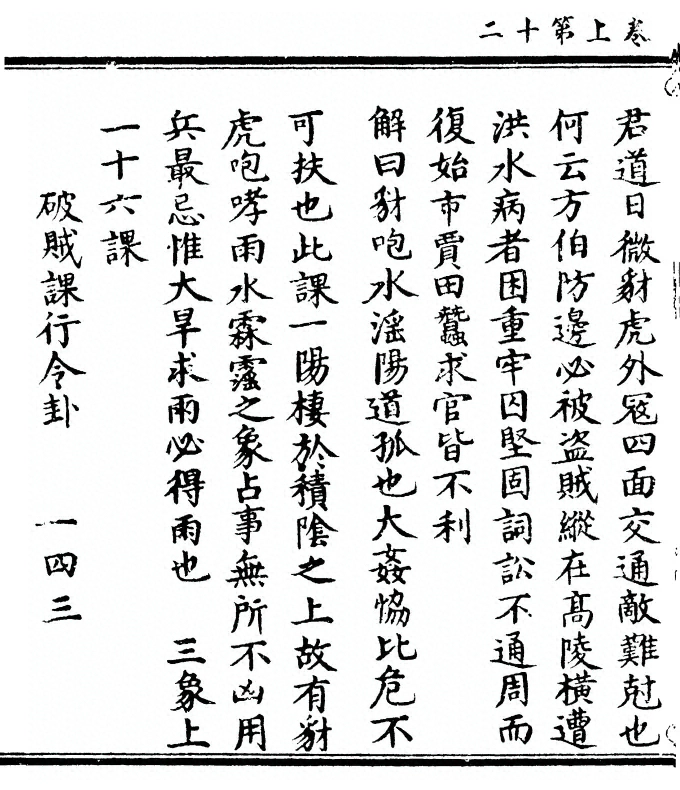 卷上第十二
君道日微豺虎外寇四面交通敵難尅也
何云方伯防邊必被盜賊縱在高陵橫遭
洪水病者困重牢囚堅固詞訟不通周而
復始市賈田蠶求官皆不利
解曰豺咆水滛陽道孤也大姦恊比危不
可扶也此課一陽棲於積隂之上故有豺
虎咆哮雨水霖霪之象占事無所不凶用
兵最忌惟大旱求雨必得雨也 三象上
一十六課
破賊課行令卦 一四三